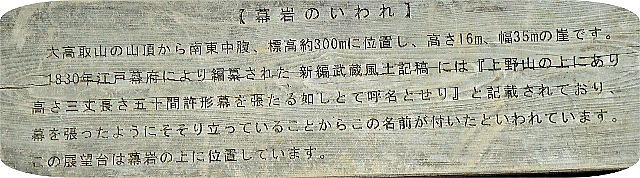 【幕岩のいわれ】
大高取山の山頂から南東中腹、標高約300mに位置し、高さ16m、幅35mの崖です。
1830年江戸幕府により編纂された 新編武蔵風土記稿 には『上野山の上にあり
高さ三丈長さ五十間許形幕を張たる如しとて呼名とせり』と記載されており、
幕を張ったようにそそり立っていることからこの名前が付いたといわれています。
この展望台は幕岩の上に位置しています。